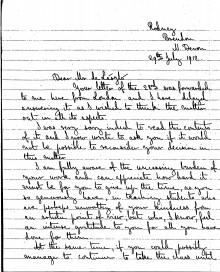 Rodney
Brendon
N. Devon
29th July 1912
Dear Mr de László
Your letter of the 25th was forwarded
to me here from London and I have delayed
answering it as I wished to think the matter
out in all its aspects.
I was very sorry indeed to read the contents
of it and I now write to ask you if it would
not be possible to reconsider your decision in
this matter.
I am fully aware of the unceasing burden of
your work and can appreciate how hard it
must be for you to give up the time, as you
so generously have in teaching students who
are perhaps unworthy of your kindness from
an artistic point of view, but who, I know, feel
an intense gratitude to you for all you have
done for them.
At the same time, if you could possibly
manage to continue to take the class until